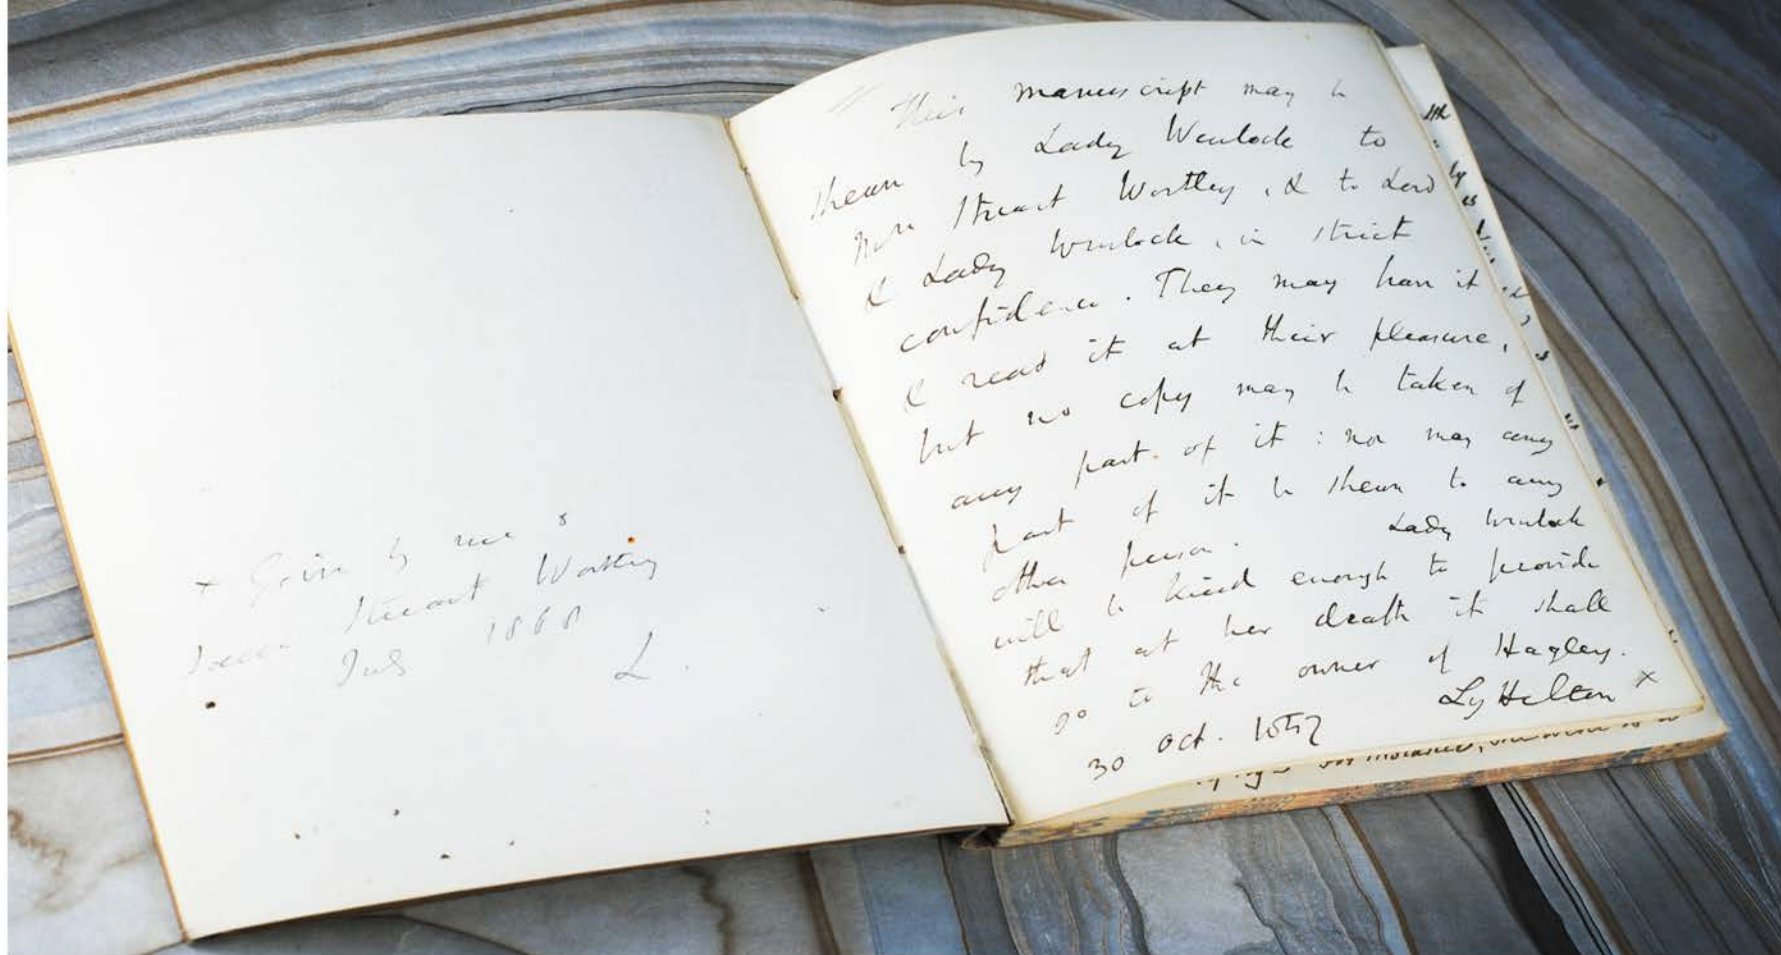 + Given by me to
Stuart Wortley
July 1868
L.
This manuscript may be
shewn by Lady Wenlock to
Mrs Stuart Wortley, & to Lord
& Lady Wenlock, in strict
confidence. They may have it
& read it at their pleasure,
but no copy may be taken of
any part of it: nor may any
part of it be shewn to any
other person. Lady Wenlock
will be kind enough to provide
that at her death it shall
go to the owner of Hagley.
Lyttelton +
30 Oct. 1857